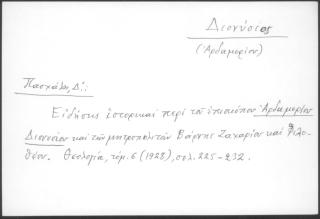 Διονύσιος
(Ἀρδαμερίου)
Πασχάλη, Δ.:
Εἰδήσεις ἱστορικαὶ περὶ τοῦ ἐπισκόπου Ἀρδαμερίου
Διονυσίου καὶ τῶν μητροπολιτῶν Βάρνης Ζαχαρίου καὶ Φιλο-
θέου. Θεολογία, τόμ. 6 (1928), σελ. 225-232.